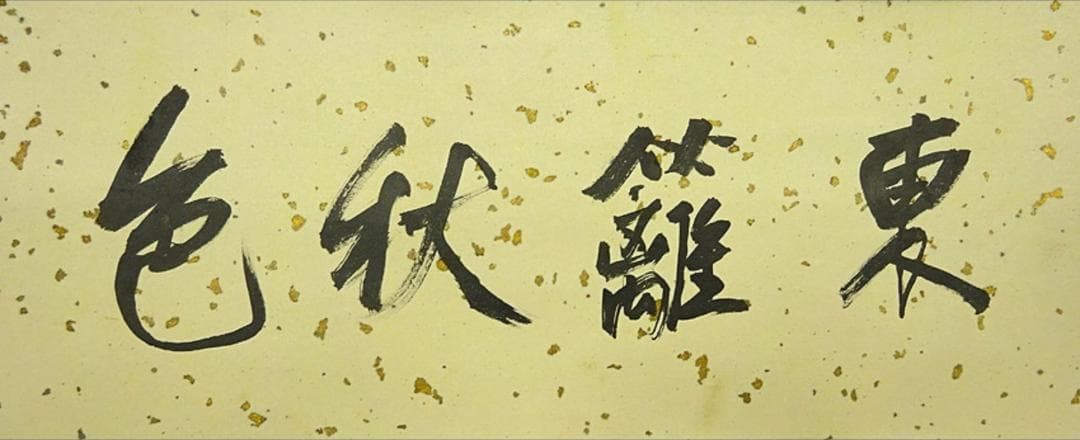 東籬秋色